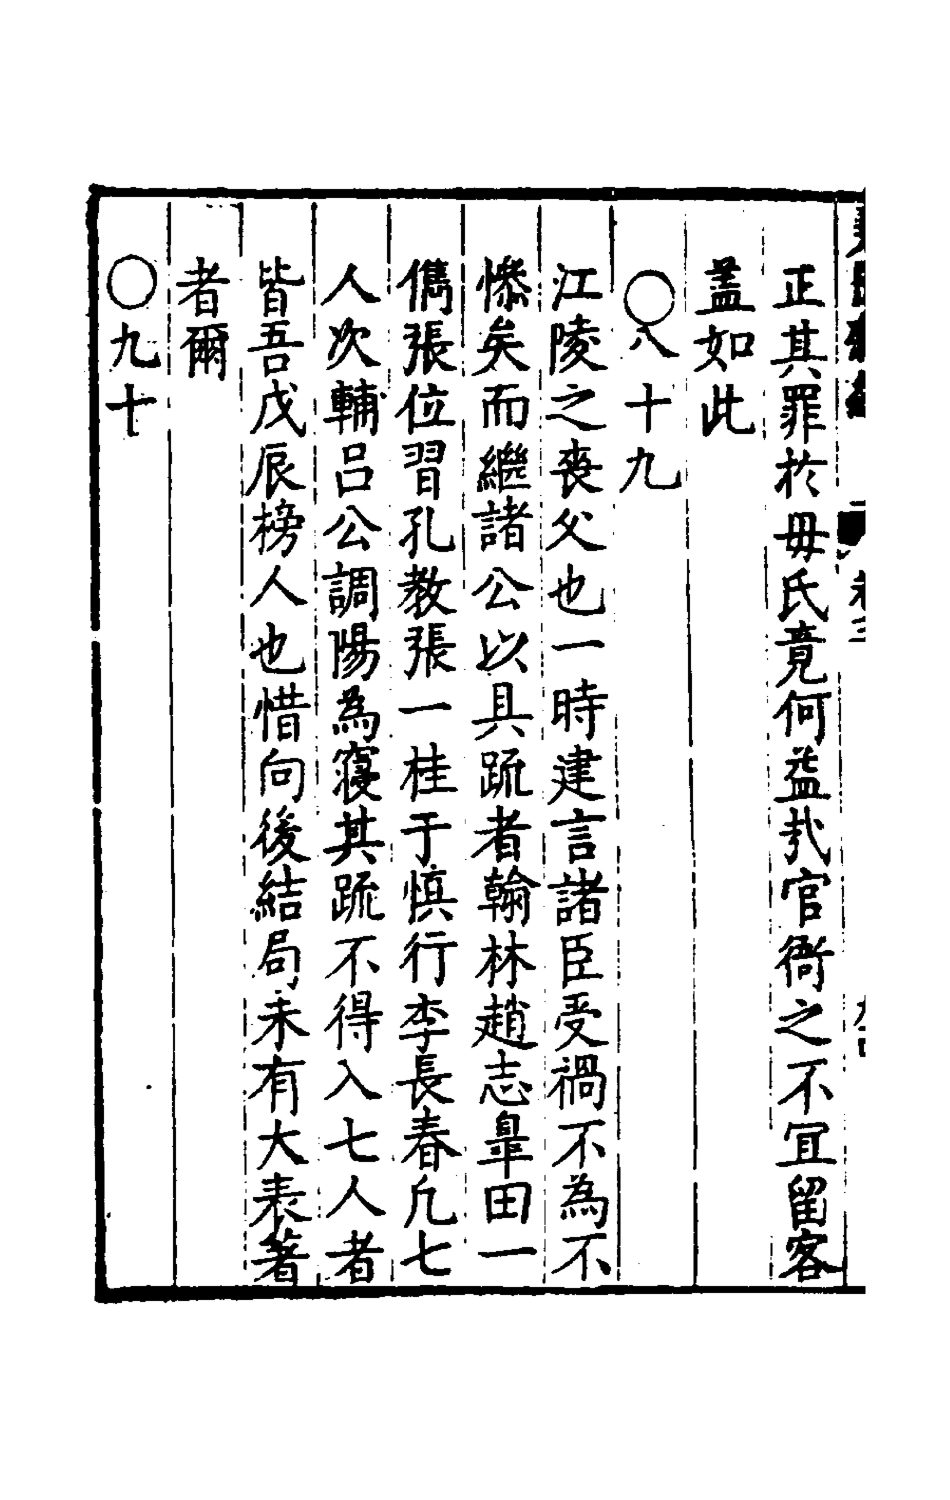 正其罪於毋氏竟何益㦲官衙之不宜留客
葢如此
○八十九
江陵之喪父也一時建言諸臣受禍不為不
慘矣而繼諸公以具䟽者翰林趙志皐田一
儁張位習孔教張一桂于慎行李長春凢七
人次輔呂公調陽為寢其䟽不得入七人者
皆吾戊辰榜人也惜向後結局未有大表著
者爾
○九十